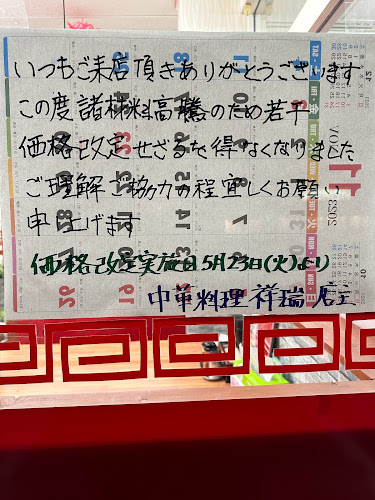 いつもご来店頂きありがとうございます
この度諸材料高騰のため若干
価格改定せざるを得なくなりました
ご理解ご協力の程宜しくお願い
申し上げます
価格改定実施日5月23日(火)より
中華料理 祥瑞 店主